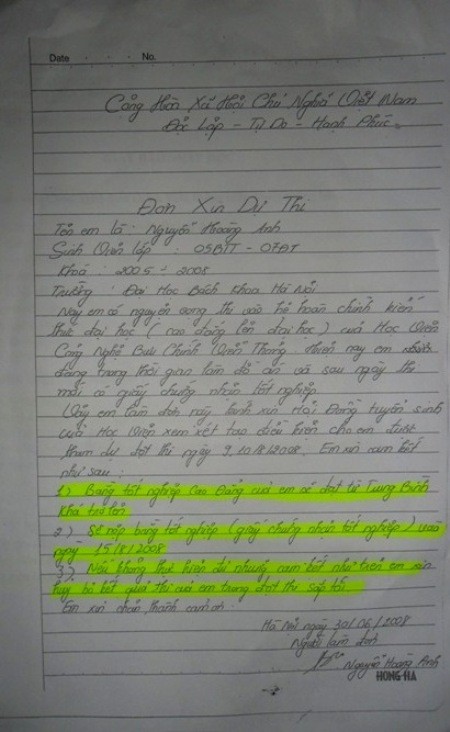 Date . . . No.
Cộng Hòa Xã Hội Chủ Nghĩa Việt Nam
Độc Lập - Tự Do - Hạnh Phúc
Đơn Xin Dự Thi
Tên em là : Nguyễn Hoàng Anh
Sinh Viên lớp : 05BIT - 07ĐT
Khoá : 2005 - 2008
Trường : Đại Học Bách Khoa Hà Nội
Nay em có nguyện vọng thi vào hệ hoàn chỉnh kiến
thức đại học ( cao đẳng lên đại học ) của Học Viện
Công Nghệ Bưu Chính Viễn Thông. Hiện nay em
đang trong thời gian làm đồ án và sau ngày thi
mới có giấy chứng nhận tốt nghiệp.
Vậy em làm đơn này kính xin Hội Đồng tuyển sinh
của Học Viện xem xét tạo điều kiện cho em được
tham dự đợt thi ngày 9,10/8/2008. Em xin cam kết
như sau :
1) Bằng tốt nghiệp Cao Đẳng của em sẽ đạt từ Trung Bình
Khá trở lên
2) Sẽ nộp bằng tốt nghiệp (giấy chứng nhận tốt nghiệp) vào
ngày 15/8/2008
3) Nếu không thực hiện đủ những cam kết như trên em xin
hủy bỏ kết quả thi của em trong đợt thi sắp tới.
Em xin chân thành cảm ơn.
Hà Nội ngày 30/06/2008
Người làm đơn
Nguyễn Hoàng Anh
HONG HA